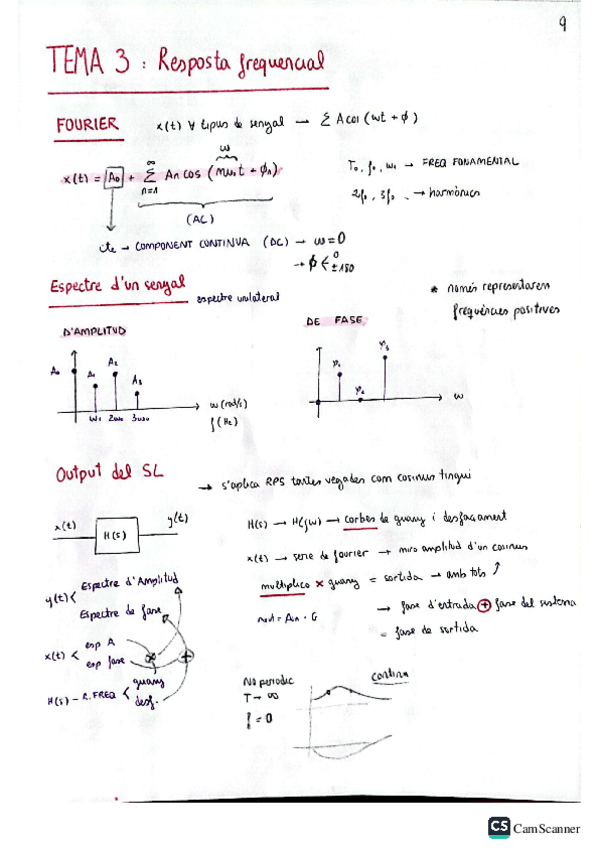 9
TEMA 3 : Resposta frequencial
FOURIER
x(t) ∀ tipus de senyal → Σ A cos (wt + φ)
w
x(t) = A₀ + Σ An cos (nw₀t + φn)
∞
n=1
(AC)
T₀, f₀, w₀ → FREQ FONAMENTAL
2f₀, 3f₀ → harmònics
cte → COMPONENT CONTINUA (DC) → w=0
→ φ < 0
±180
Espectre d'un senyal
espectre unilateral
* només representarem
freqüències positives
D'AMPLITUD
DE FASE
A₀
A₁
A₂
A₃
w (rad/s)
f (Hz)
φ₁
φ₂
φ₃
w
Output del SL
→ s'aplica RPS tantes vegades com cosinus tingui
x(t)
H(s)
y(t)
H(s) → H(jw) → corbes de guany i desfasament
x(t) → serie de fourier → miro amplitud d'un cosinus
multiplico × guany = sortida → amb tots
y(t) <
Espectre d'Amplitud
Espectre de fase
→ fase d'entrada + fase del sistema
= fase de sortida
x(t) <
esp A
esp fase
×
+
H(s) - R. FREQ <
guany
desf.
No periodic
T → ∞
f = 0
continu
CS CamScanner